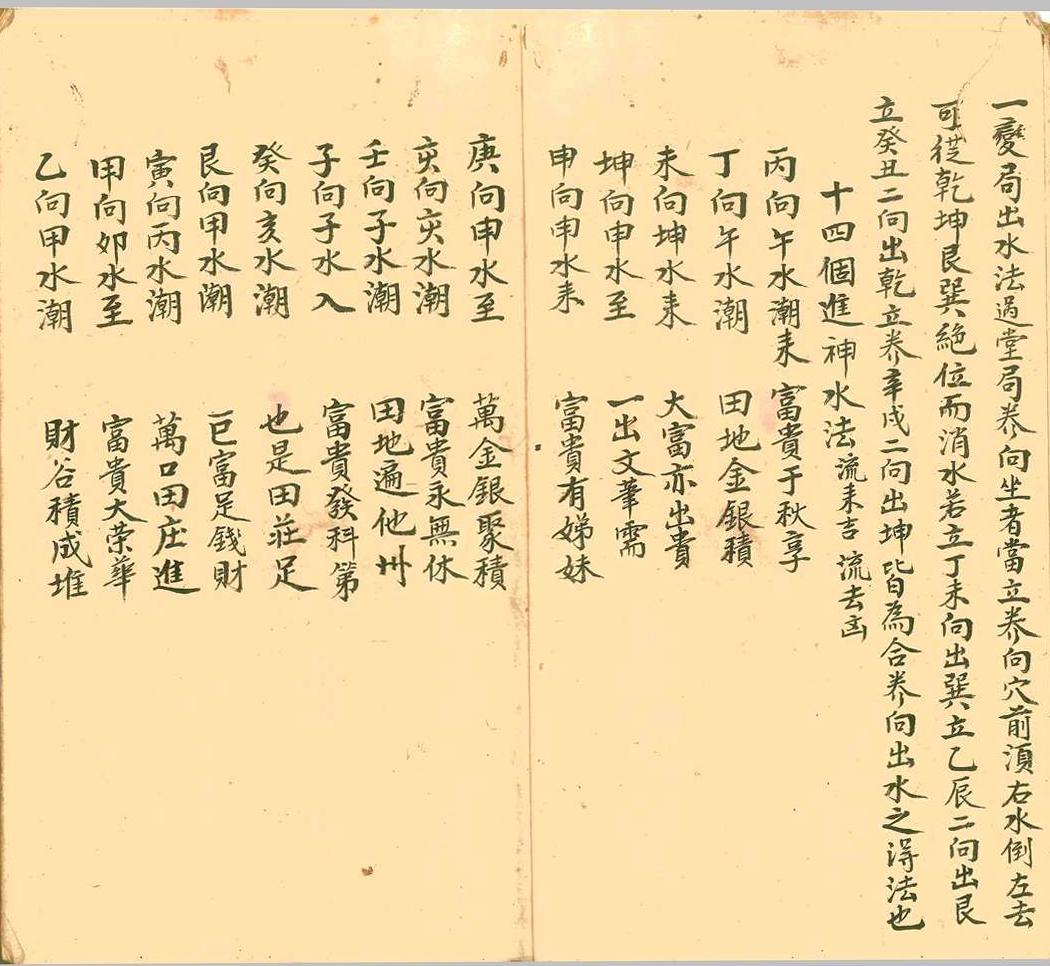 一變局出水法過堂局养向坐者當立养向穴前湏右水倒左去
可從乾坤艮巽絶位而消水若立丁未向出巽立乙辰二向出艮
立癸丑二向出乾立养辛戌二向出坤皆為合养向出水之得法也
十四個進神水法流来吉 流去凶
丙向午水潮来 富貴于秋享
丁向午水潮 田地金銀積
未向坤水来 大富亦出貴
坤向申水至 一出文筆儒
申向申水来 富貴有娣妹
庚向申水至 萬金銀聚積
亥向亥水潮 富貴永無休
壬向子水潮 田地遍他州
子向子水入 富貴發科第
癸向亥水潮 也是田莊足
艮向甲水潮 巨富足錢財
寅向丙水潮 萬口田庄進
甲向卯水至 富貴大荣華
乙向甲水潮 財谷積成堆